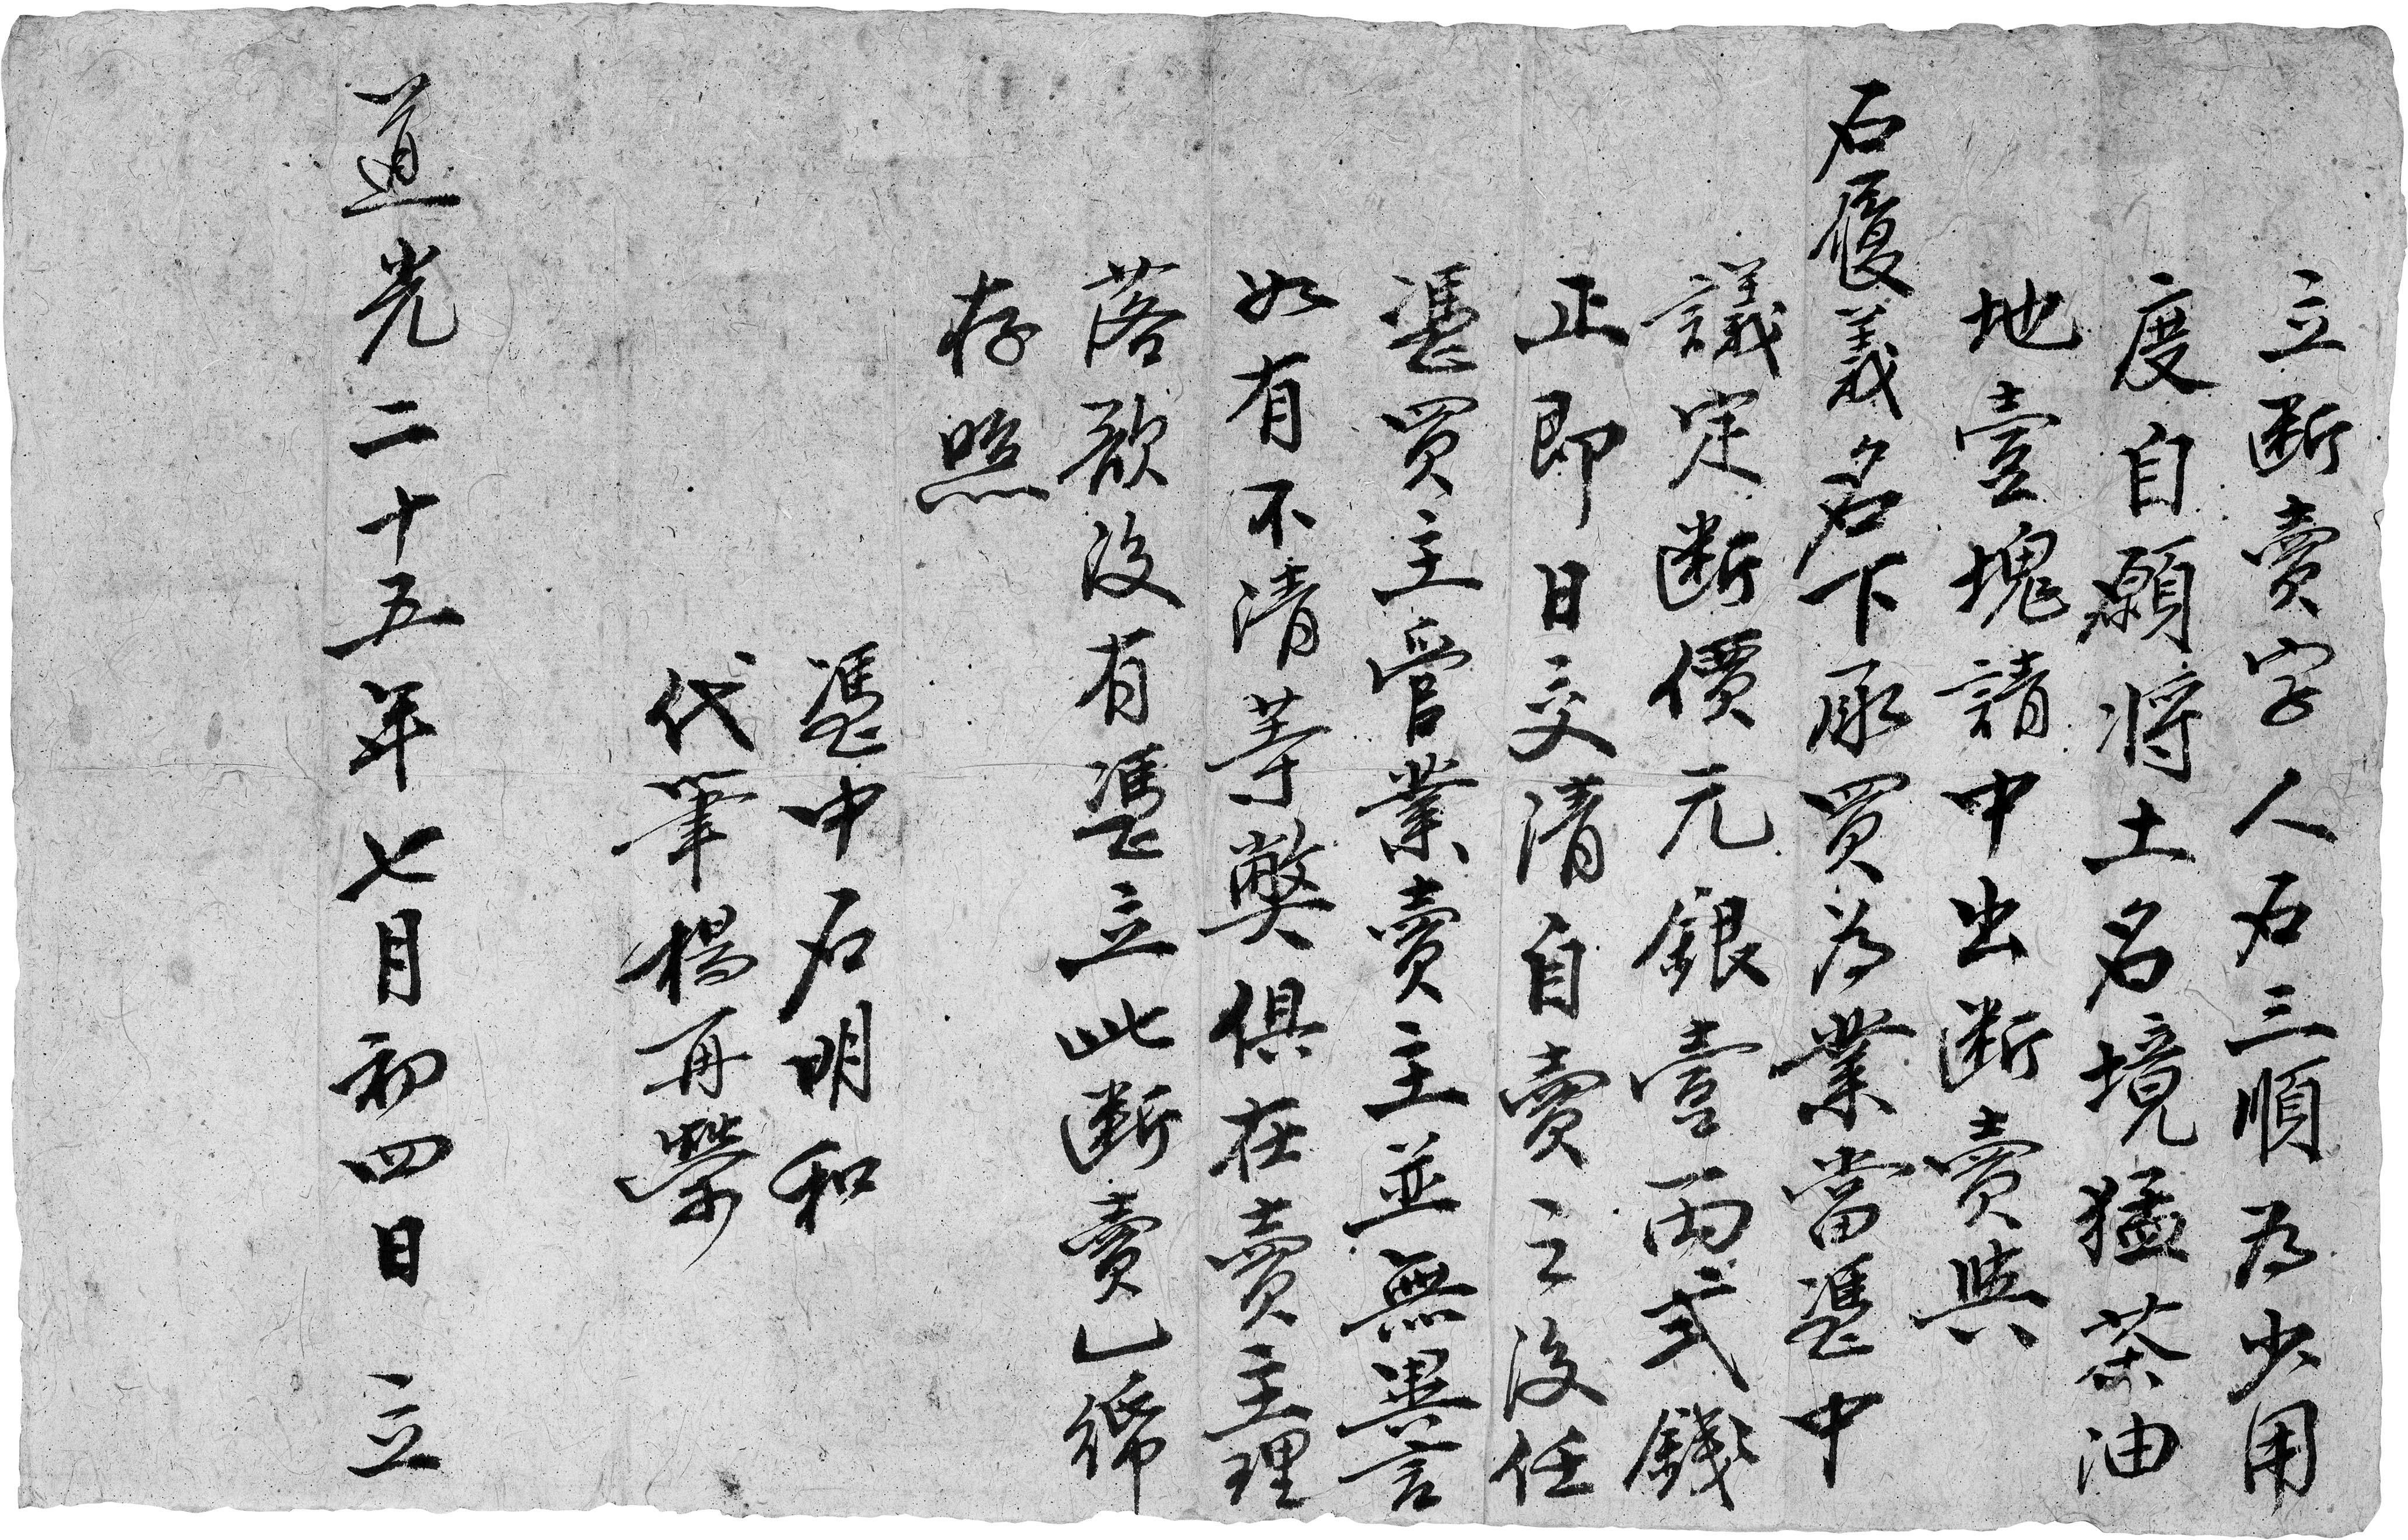 立断賣字人石三順為少用
度自願將土名境猛茶油
地壹塊請中出断賣與
石履義名下承買為業當凴中
議定断價元銀壹両弍錢
正即日交清自賣之後任
凴買主管業賣主並無異言
如有不清等獘俱在賣主理
落欲後有凴立此断賣乚
存照
凴中石明和
代筆楊再榮
道光二十五年七月初四日 立